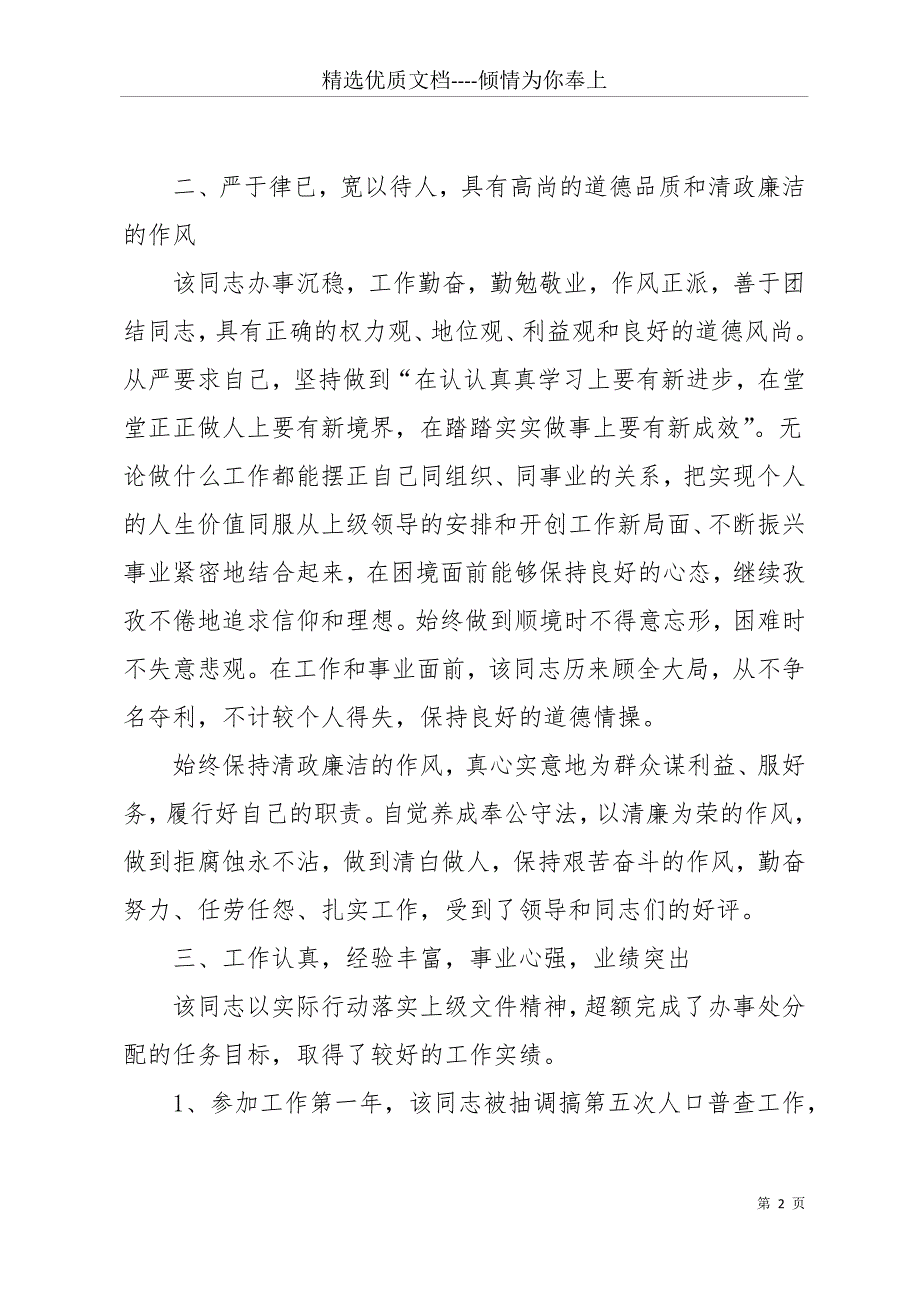 精选优质文档----倾情为你奉上
二、严于律已，宽以待人，具有高尚的道德品质和清政廉洁
的作风
该同志办事沉稳，工作勤奋，勤勉敬业，作风正派，善于团
结同志，具有正确的权力观、地位观、利益观和良好的道德风尚。
从严要求自己，坚持做到“在认认真真学习上要有新进步，在堂
堂正正做人上要有新境界，在踏踏实实做事上要有新成效”。无
论做什么工作都能摆正自己同组织、同事业的关系，把实现个人
的人生价值同服从上级领导的安排和开创工作新局面、不断振兴
事业紧密地结合起来，在困境面前能够保持良好的心态，继续孜
孜不倦地追求信仰和理想。始终做到顺境时不得意忘形，困难时
不失意悲观。在工作和事业面前，该同志历来顾全大局，从不争
名夺利，不计较个人得失，保持良好的道德情操。
始终保持清政廉洁的作风，真心实意地为群众谋利益、服好
务，履行好自己的职责。自觉养成奉公守法，以清廉为荣的作风，
做到拒腐蚀永不沾，做到清白做人，保持艰苦奋斗的作风，勤奋
努力、任劳任怨、扎实工作，受到了领导和同志们的好评。
三、工作认真，经验丰富，事业心强，业绩突出
该同志以实际行动落实上级文件精神，超额完成了办事处分
配的任务目标，取得了较好的工作实绩。
1、参加工作第一年，该同志被抽调搞第五次人口普查工作，
第 2 页